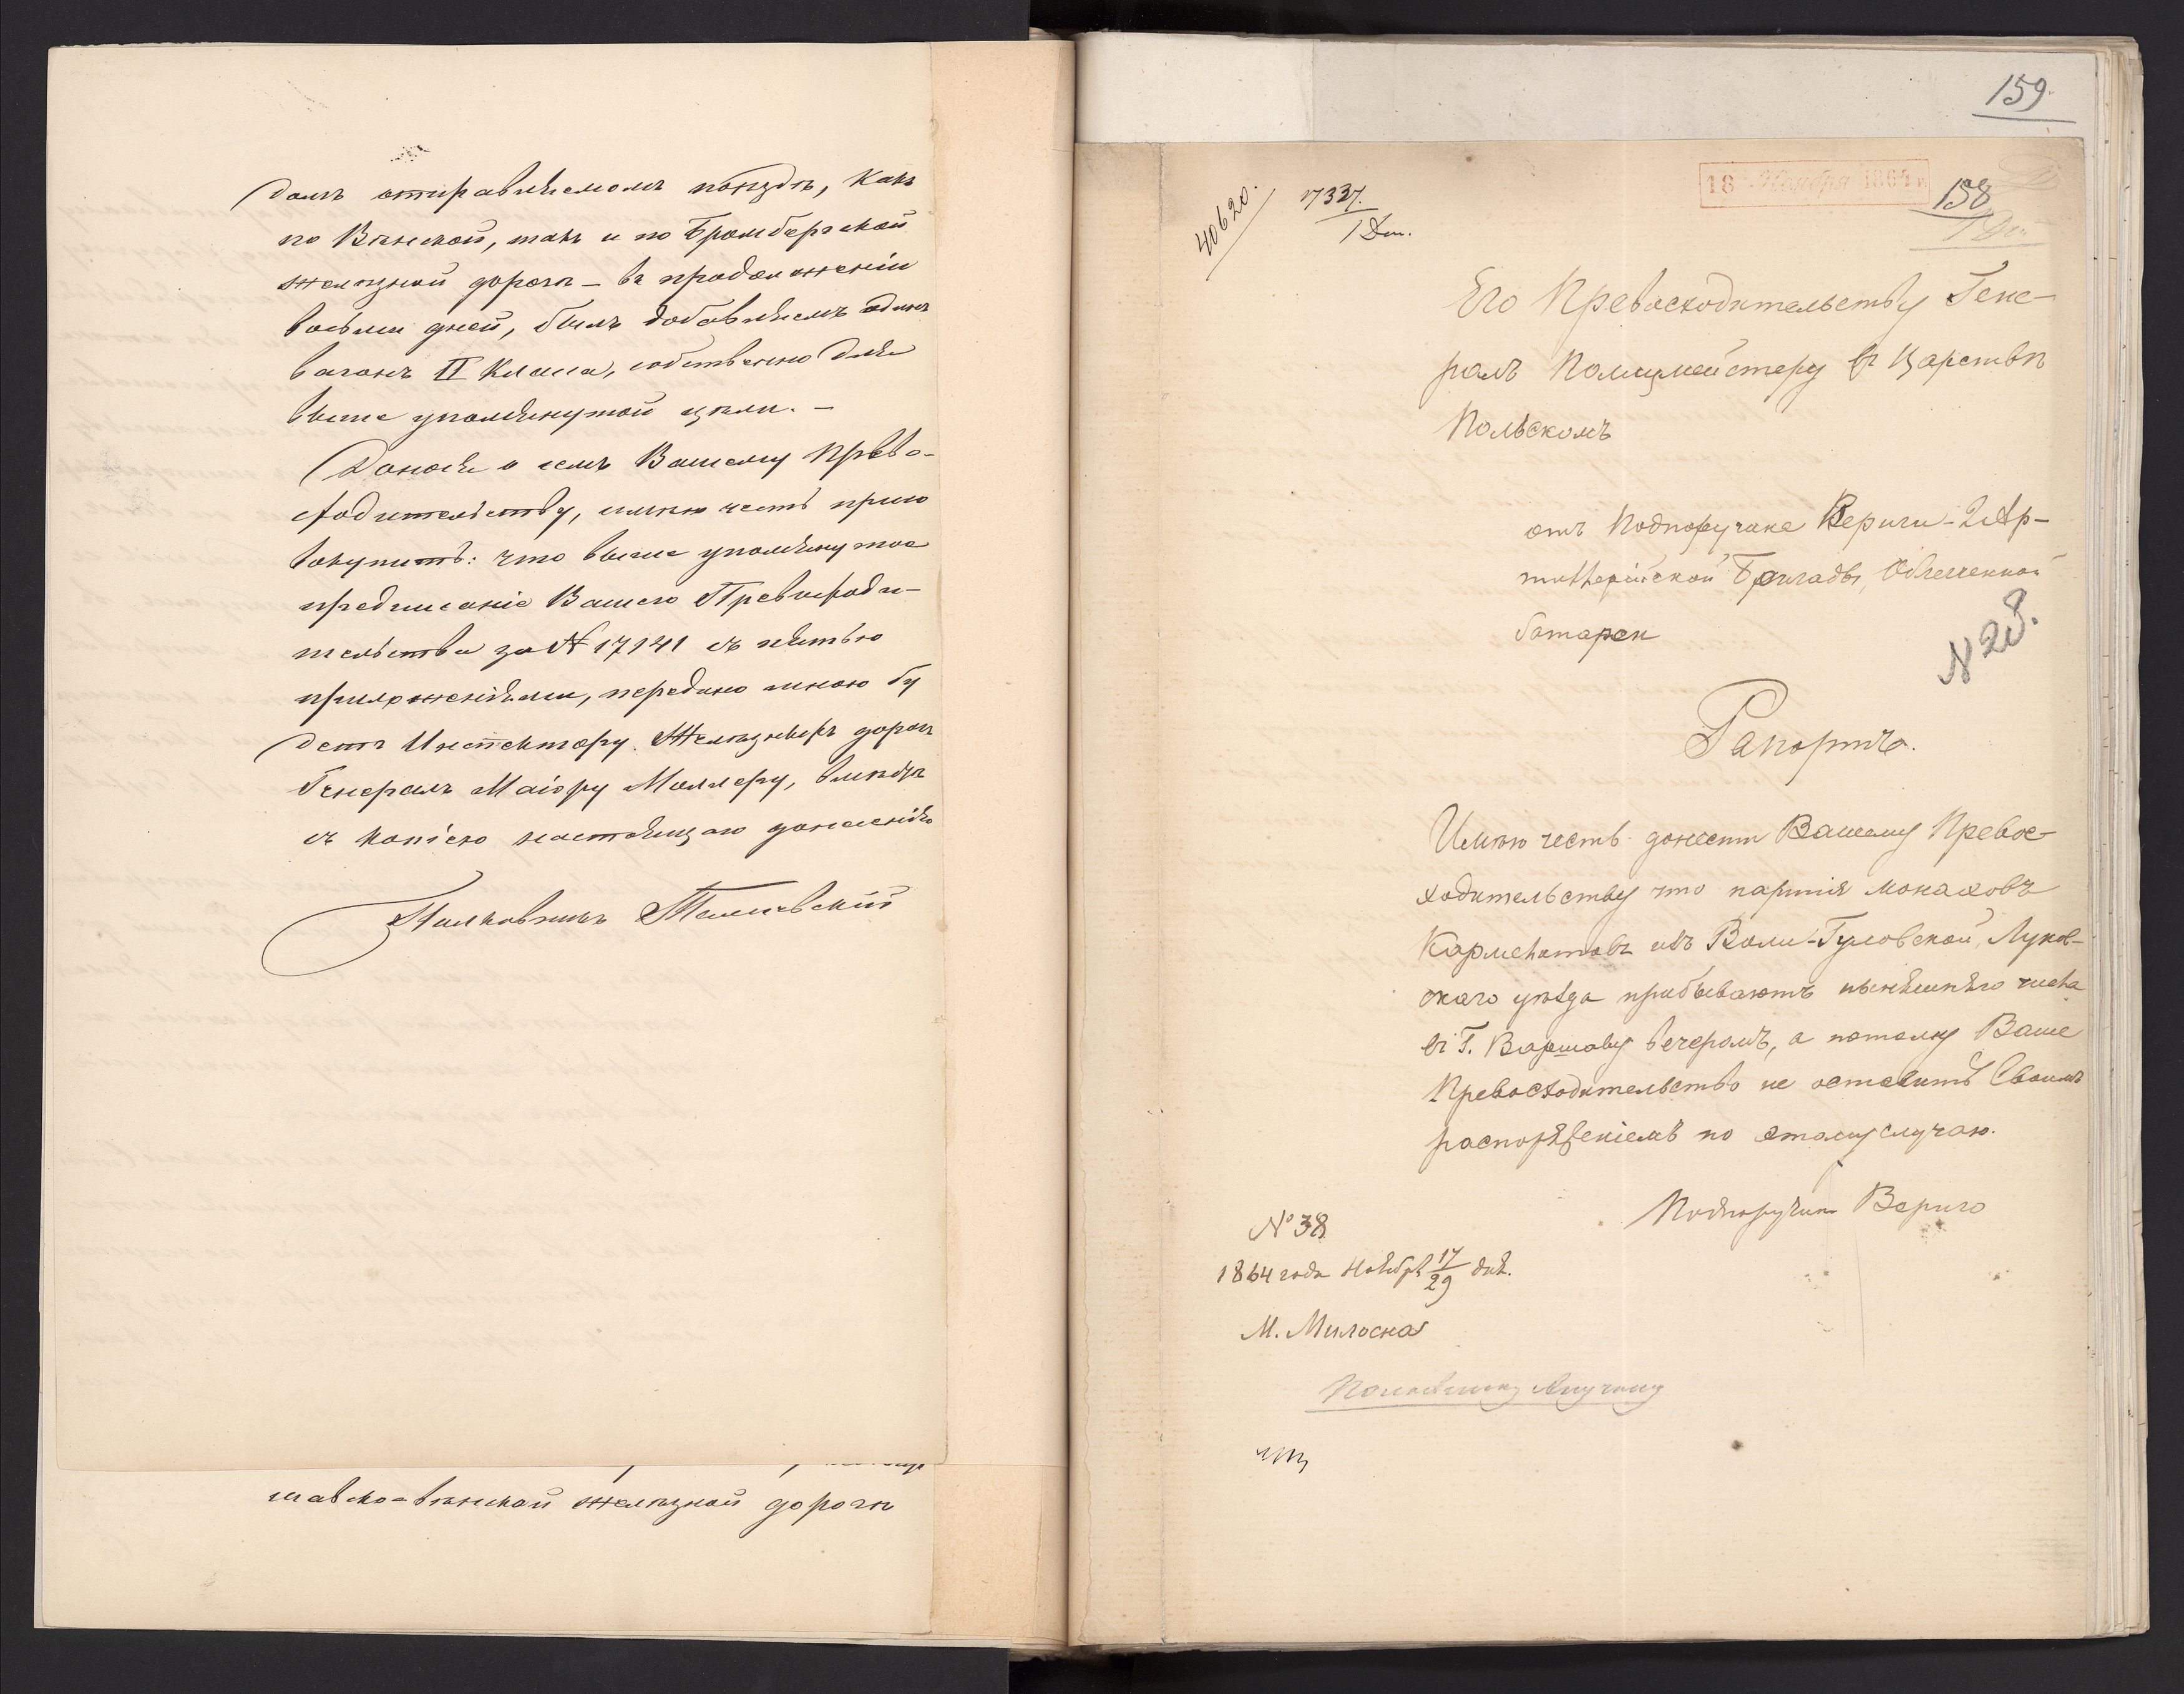 домъ отправляемомъ поѣздѣ, какъ
по Вѣнской, такъ и по Бромбергской
желѣзной дорогѣ – въ продолженіи
восьми дней, былъ добавляемъ одинъ
вагонъ II класса, собственно для
выше упомянутой цѣли. –
Донося о семъ Вашему Прево-
сходительству, имѣю честь присо
вокупить: что выше упомянутое
предписаніе Вашего Превосходи-
тельства за № 17141 съ пятью
приложеніями, передано мною бу
детъ Инспектору Желѣзныхъ дорогъ
Генералъ Маіору Моллеру, вмѣстѣ
съ копіею настоящаго донесенія
Полковникъ
шавско=вѣнской желѣзной дорогѣ
159.
18 Ноября 1864 г
158
40620.
17337.
Его Превосходительству Гене-
ралъ Полицмейстеру въ Царствѣ
Польскомъ
отъ Подпоручика Вериги - 2 Ар-
тиллерійской Бригады, Облегченной
батареи
№ 28.
Рапортъ.
Имѣю честь донести Вашему Превос-
ходительству что партія монаховъ
Кармелитовъ изъ Воли-Гуловской, Луков-
скаго уѣзда прибываютъ нынѣшняго числа
въ Г. Варшаву вечеромъ, а потому Ваше
Превосходительство не оставитъ Своимъ
распоряженіемъ по этому случаю.
Подпоручикъ Вериго
№ 38
1864 года Ноября 17/29 дня.
М. Милосна
Полковнику Анучину